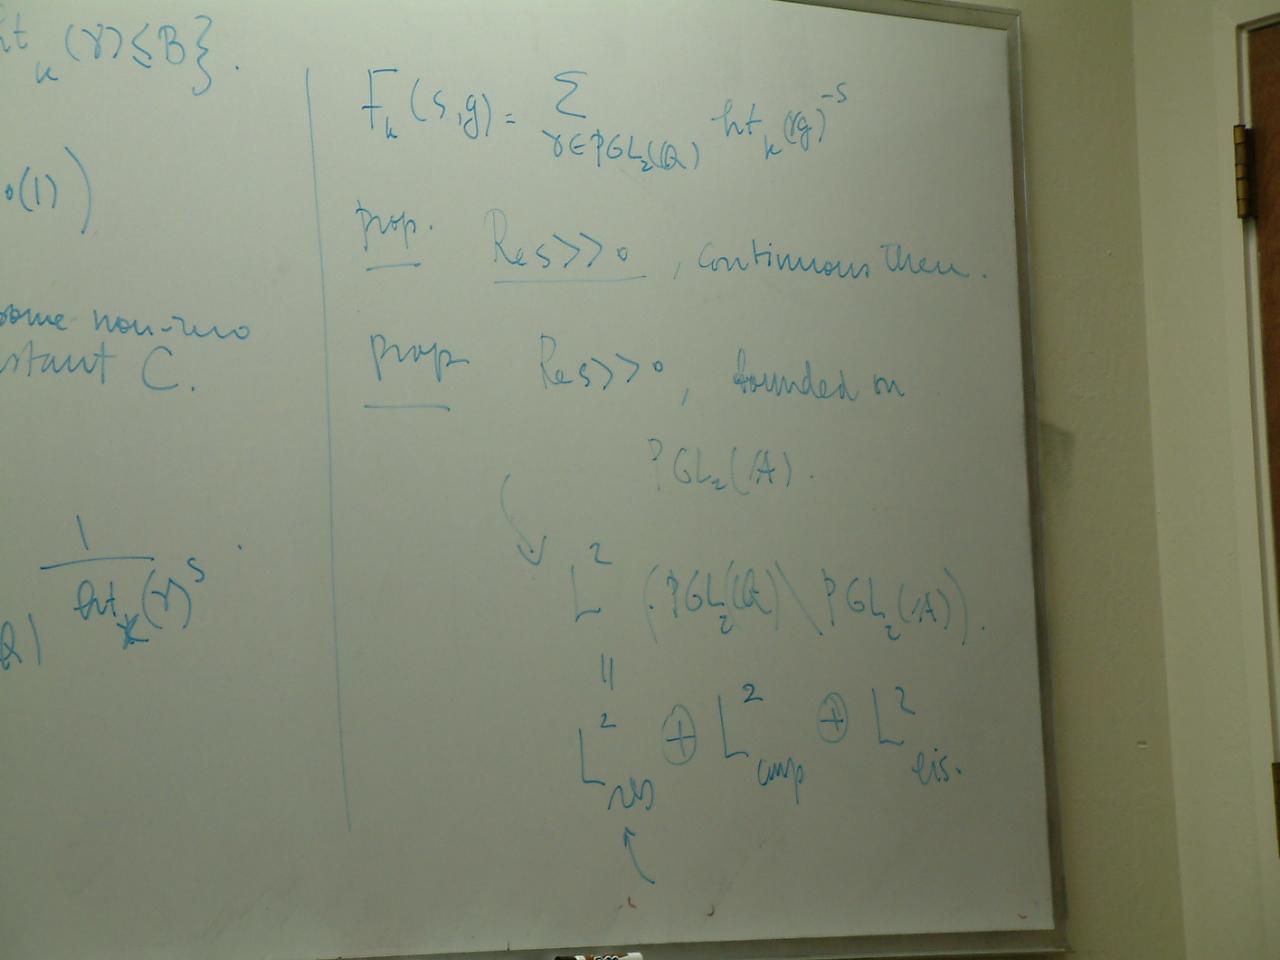 ht_k(γ) ≤ B}.
o(1))
some non-zero
stant C.
1
ht_k(γ)^s .
Q)
F_k(s,g) = Σ_{γ∈PGL_2(Q)} ht_k(γg)^{-s}
prop. Re s >> 0, continuous then.
prop Re s >> 0, bounded on
PGL_2(A).
L^2 (PGL_2(Q) \ PGL_2(A)).
||
L^2_res ⊕ L^2_cusp ⊕ L^2_eis.